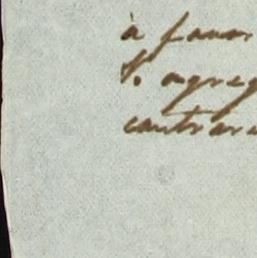 à favor
S. agreg
contrare